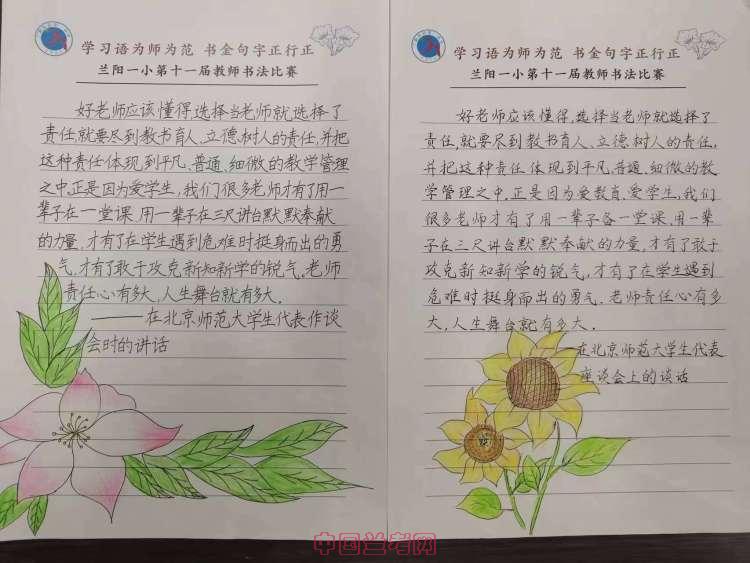 学习语为师为范 书金句字正行正
兰阳一小第十一届教师书法比赛
好老师应该懂得,选择当老师就选择了
责任,就要尽到教书育人、立德树人的责任,并把
这种责任体现到平凡、普通、细微的教学管理
之中,正是因为爱学生,我们很多老师才有了用一
辈子在一堂课、用一辈子在三尺讲台默默奉献
的力量,才有了在学生遇到危难时挺身而出的勇
气,才有了敢于攻克新知新学的锐气,老师
责任心有多大,人生舞台就有多大。
——在北京师范大学生代表作谈
会时的讲话
学习语为师为范 书金句字正行正
兰阳一小第十一届教师书法比赛
好老师应该懂得,选择当老师就选择了
责任,就要尽到教书育人、立德树人的责任,
并把这种责任体现到平凡、普通、细微的教
学管理之中,正是因为爱教育、爱学生,我们
很多老师才有了用一辈子备一堂课、用一辈
子在三尺讲台默默奉献的力量,才有了敢于
攻克新知新学的锐气,才有了在学生遇到
危难时挺身而出的勇气。老师责任心有多
大,人生舞台就有多大。
—在北京师范大学生代表
座谈会上的谈话
中国兰考网